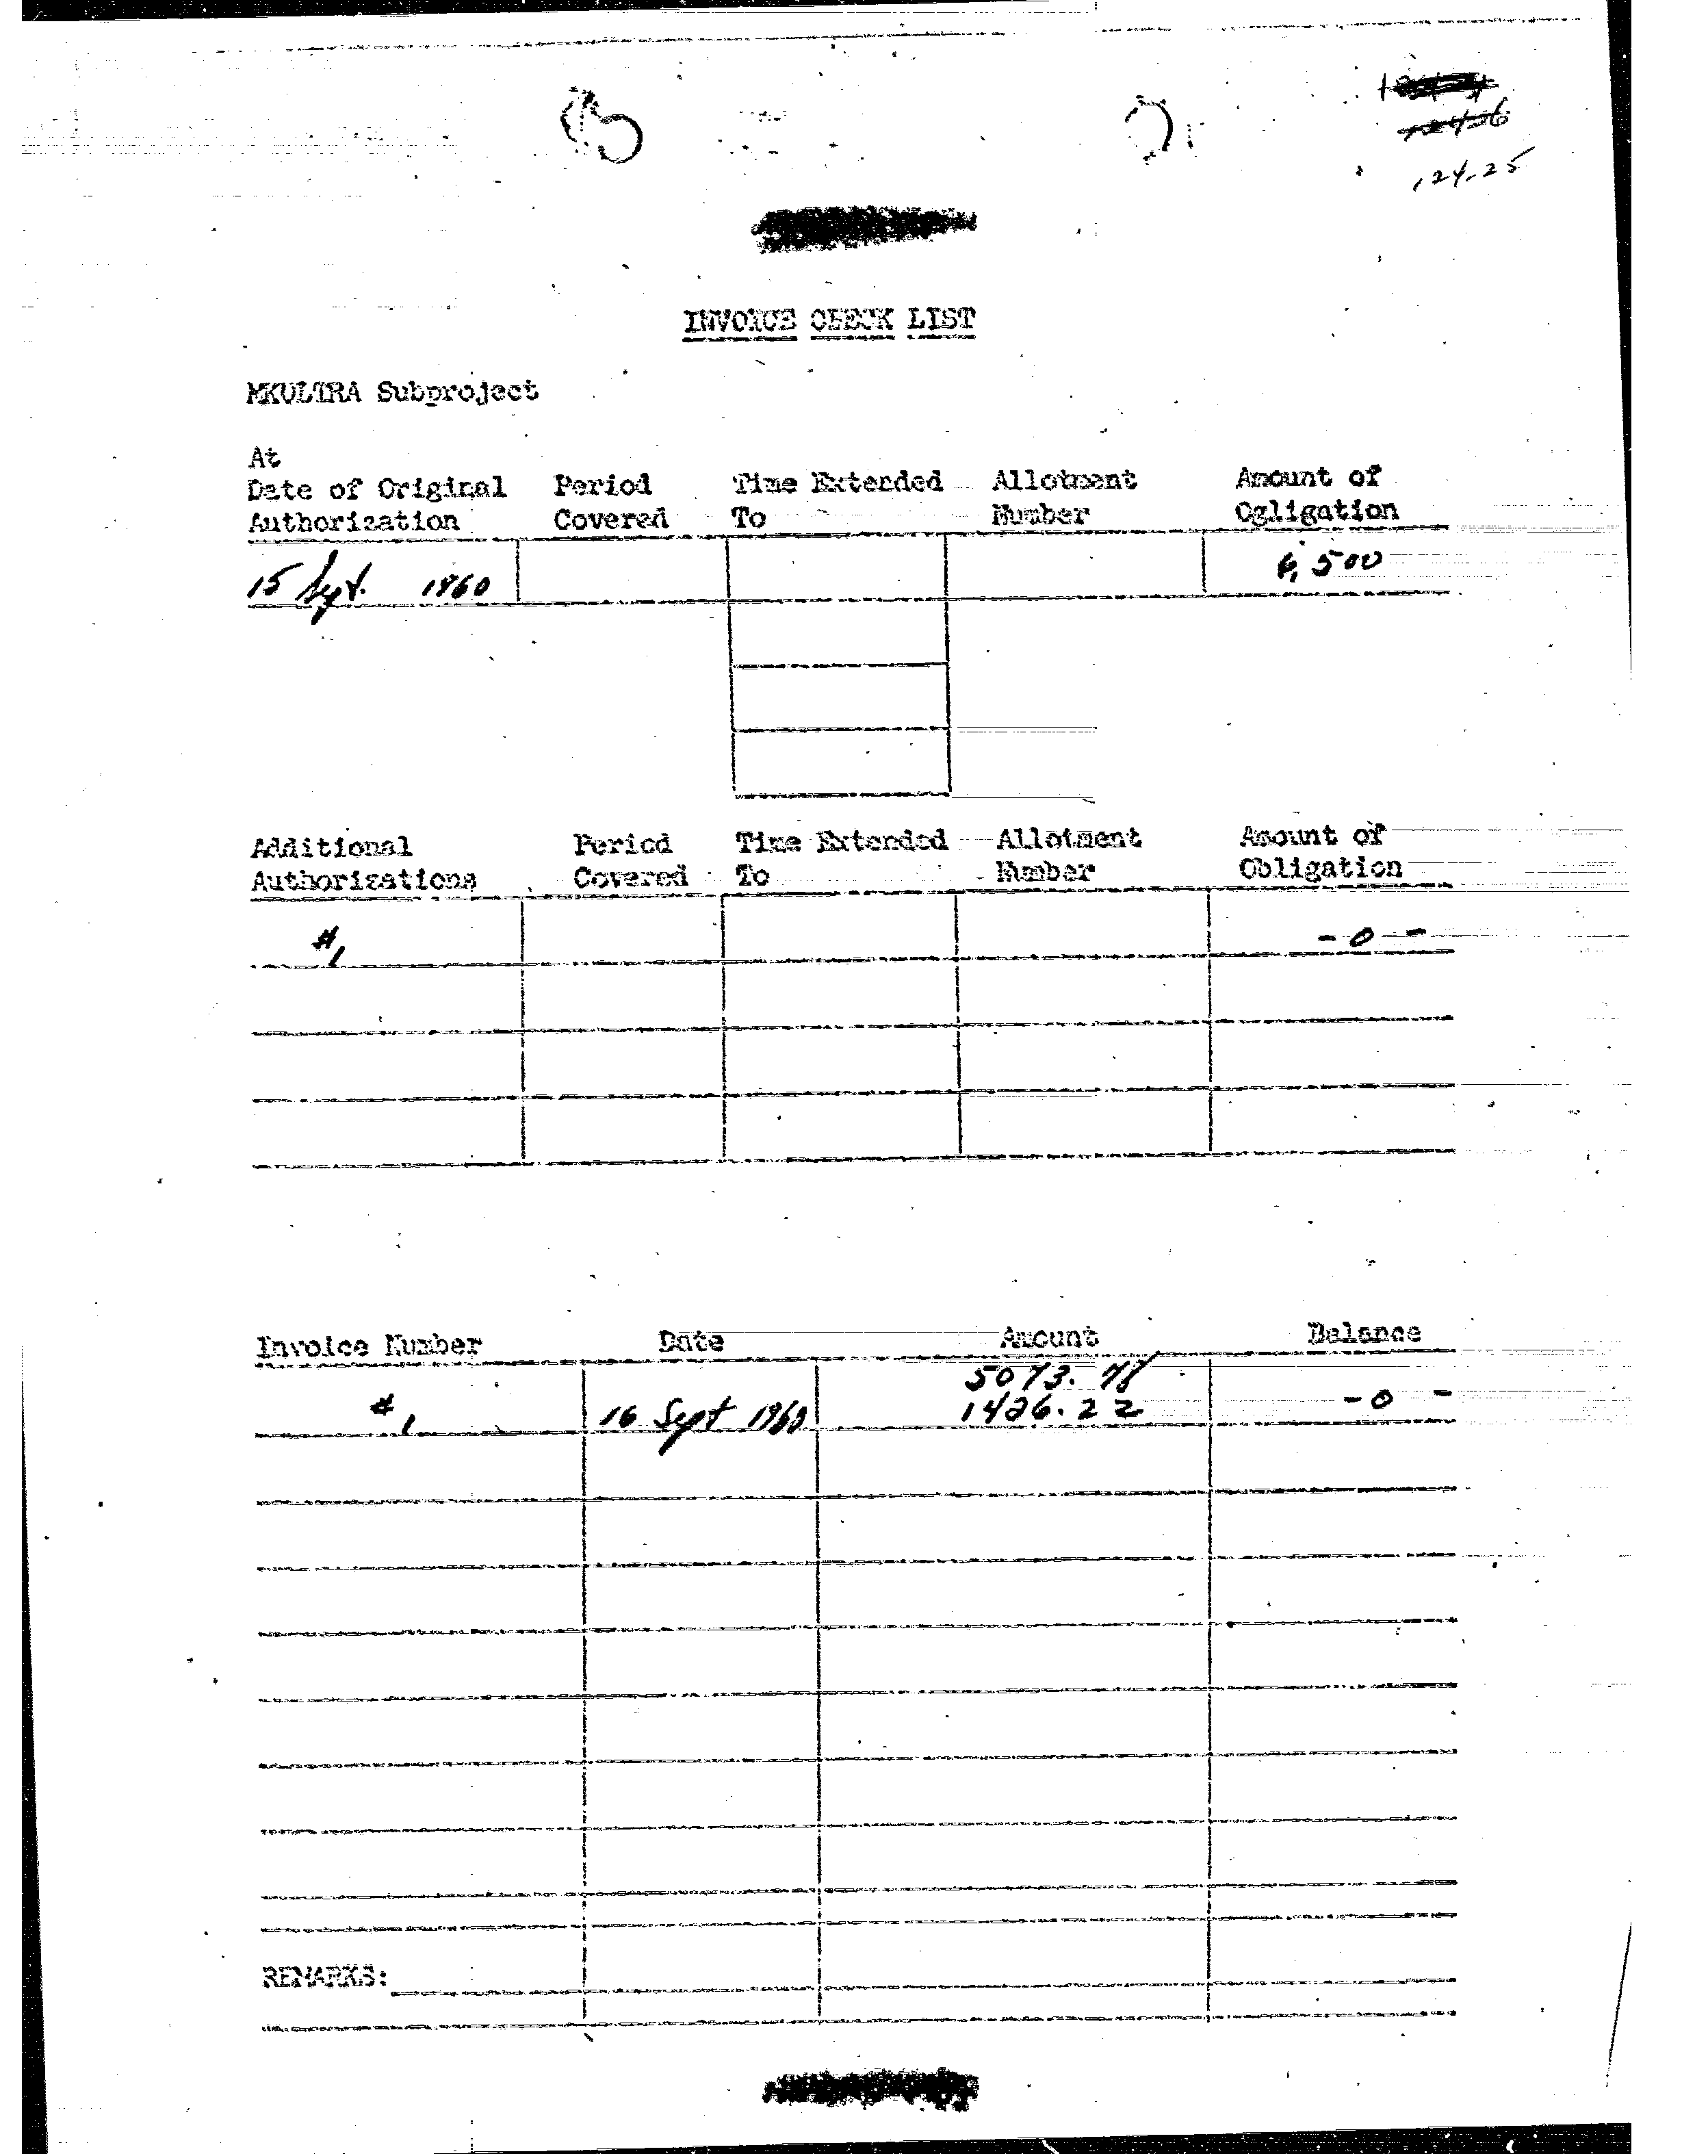 124-25
INVOICE CHECK LIST
MKULTRA Subproject
At
Date of Original Authorization
Period Covered
Time Extended To
Allotment Number
Amount of Ogligation
15 Sept. 1960
6,500
Additional Authorizations
Period Covered
Time Extended To
Allotment Number
Amount of Obligation
#1
-0-
Invoice Number
Date
Amount
Balance
5073.78
#1
16 Sept 1960
1426.22
-0-
REMARKS: